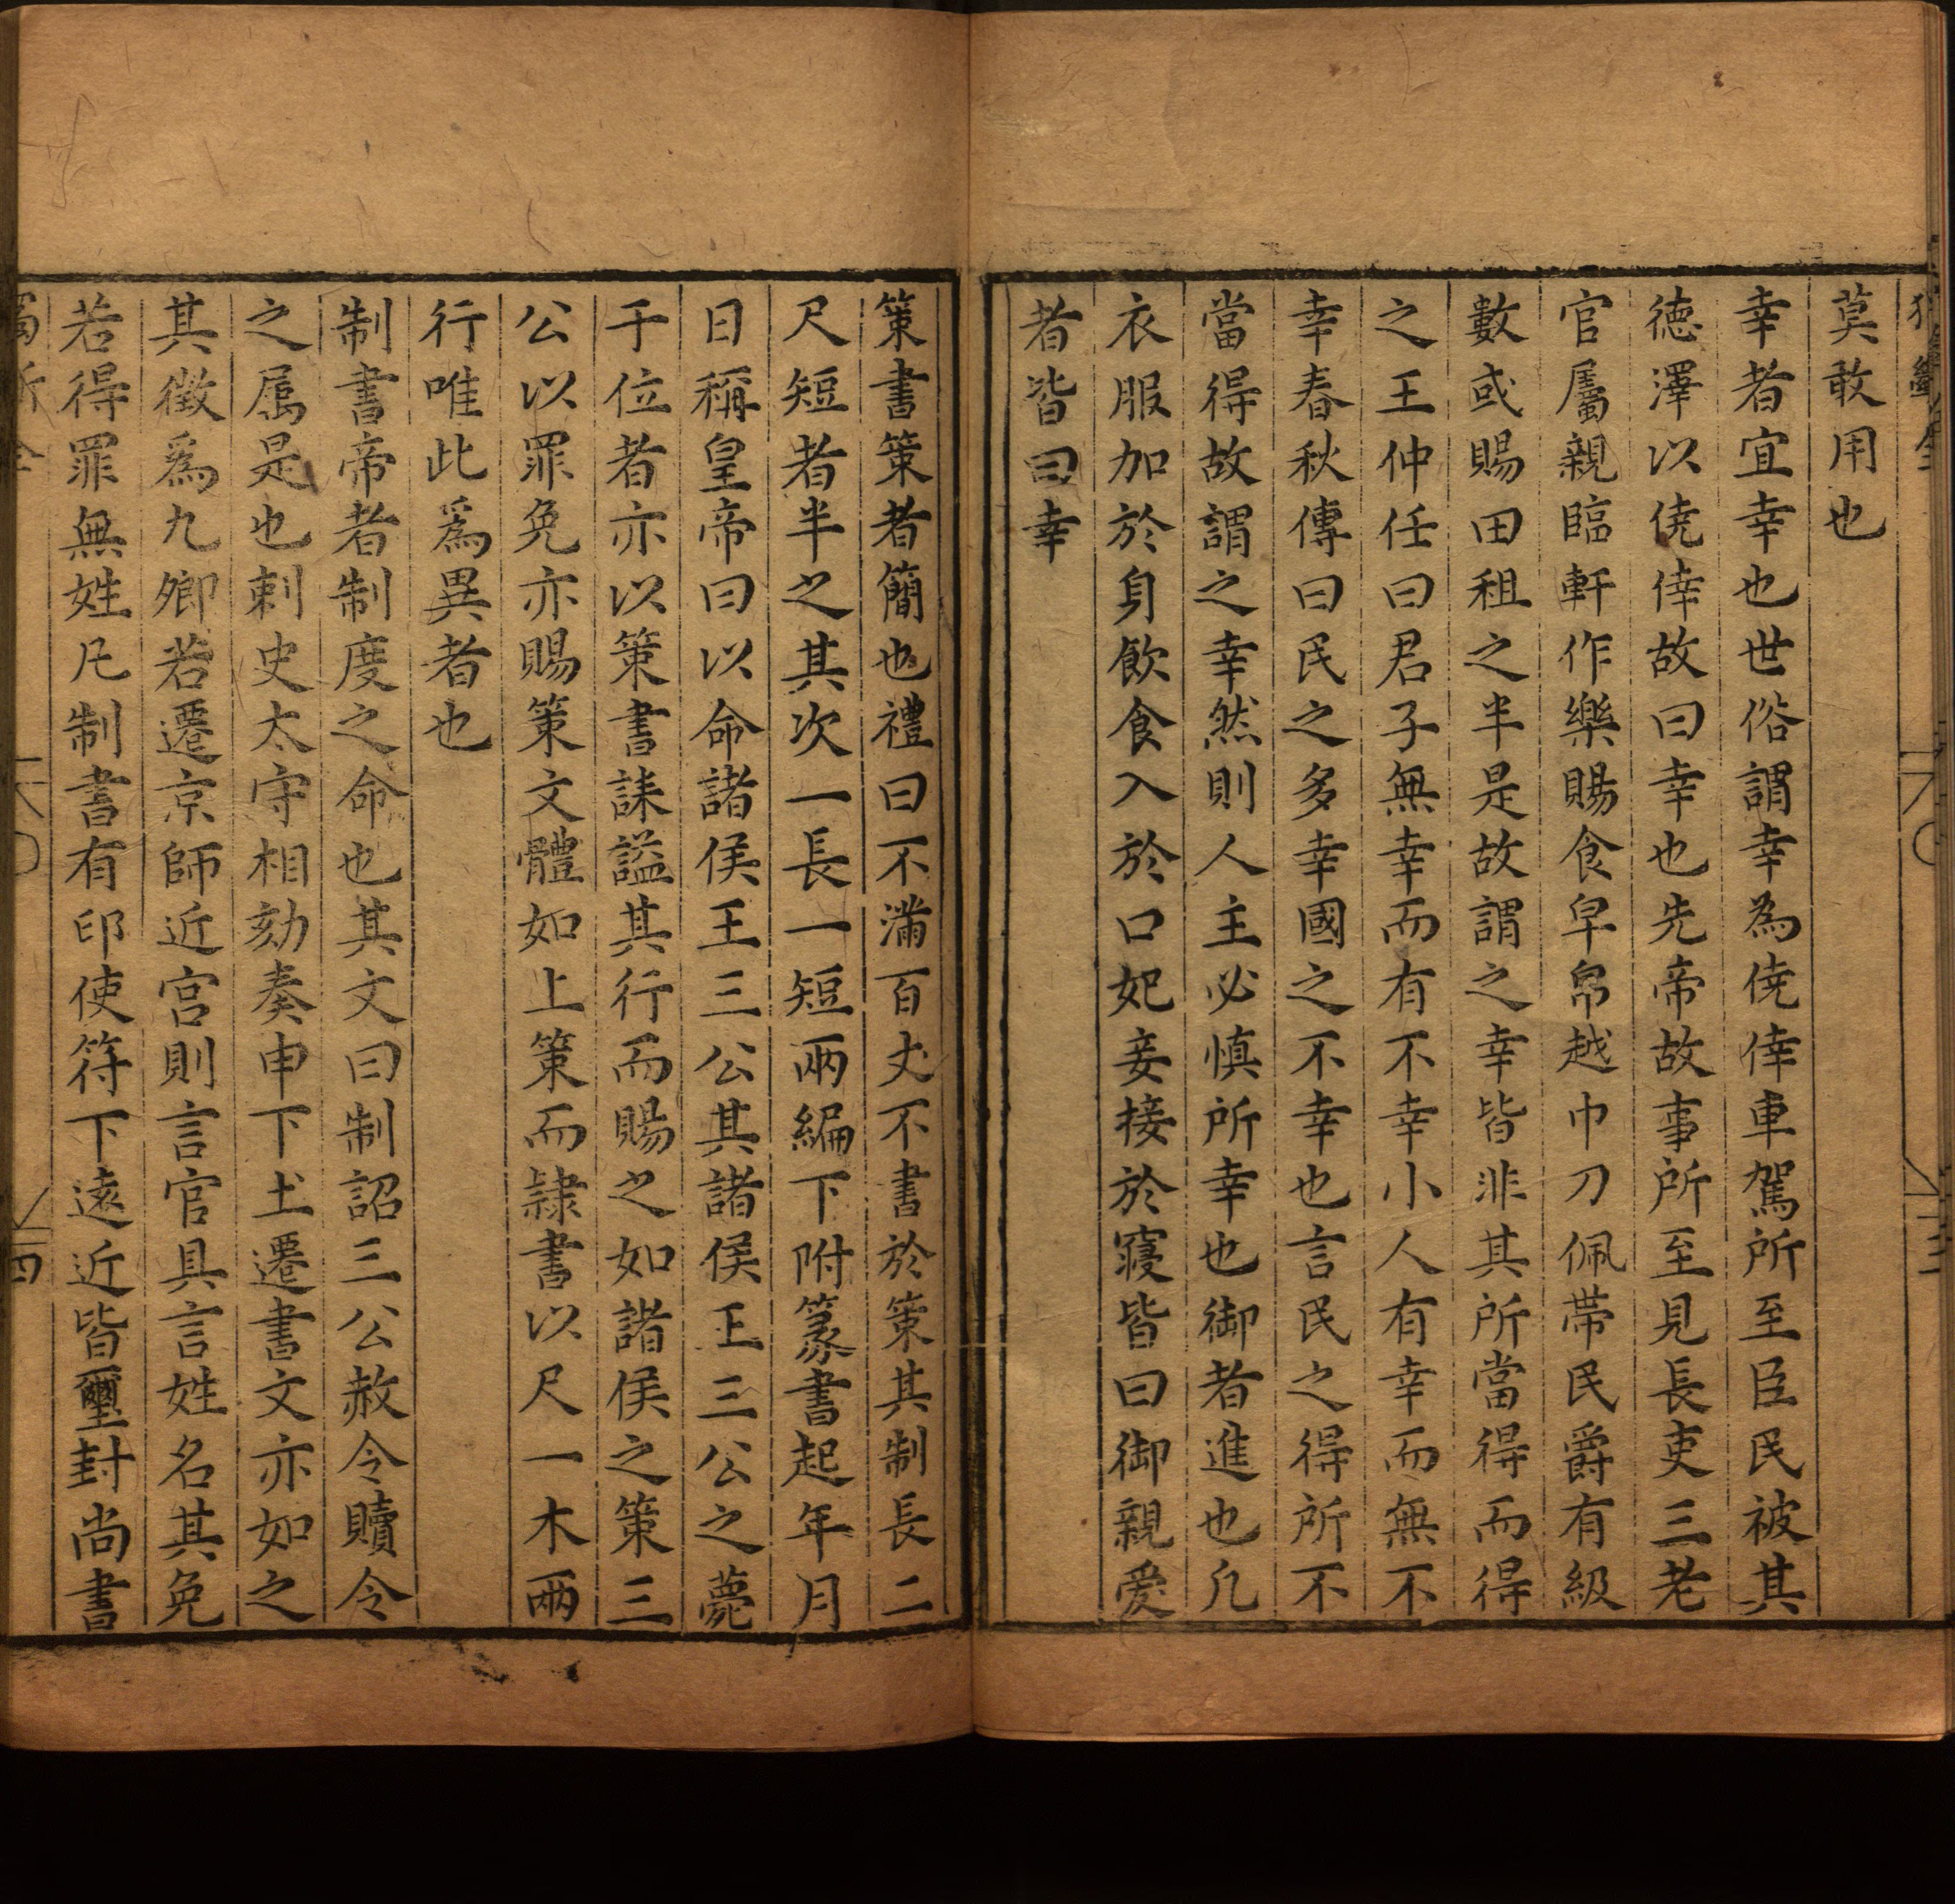 莫敢用也
幸者宜幸也世俗謂幸為僥倖車駕所至臣民被其
德澤以僥倖故曰幸也先帝故事所至見長吏三老
官屬親臨軒作樂賜食皁帛越巾刀佩帶民爵有級
數或賜田租之半是故謂之幸皆非其所當得而得
之王仲任曰君子無幸而有不幸小人有幸而無不
幸春秋傳曰民之多幸國之不幸也言民之得所不
當得故謂之幸然則人主必慎所幸也御者進也凡
衣服加於身飲食入於口妃妾接於寢皆曰御親愛
者皆曰幸
策書策者簡也禮曰不滿百丈不書於策其制長二
尺短者半之其次一長一短兩編下附篆書起年月
日稱皇帝曰以命諸侯王三公其諸侯王三公之薨
于位者亦以策書誄謚其行而賜之如諸侯之策三
公以罪免亦賜策文體如上策而隷書以尺一木兩
行唯此爲異者也
制書帝者制度之命也其文曰制詔三公赦令贖令
之屬是也刺史太守相劾奏申下土遷書文亦如之
其徵爲九卿若遷京師近宫則言官具言姓名其免
若得罪無姓凡制書有印使符下遠近皆璽封尚書
四